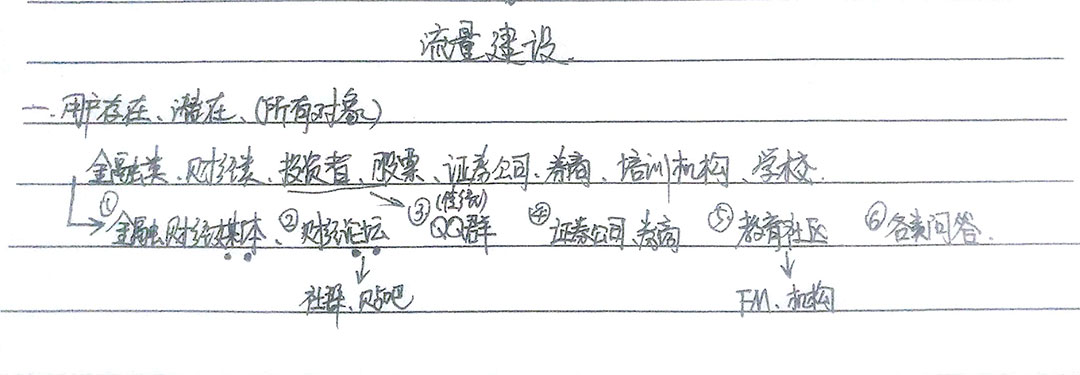 流量建设.
一.用户存在、潜在、(所有对象)
金融类、财经类、投资者、股票、证券公司、券商、培训机构、学校.
①金融财经媒体、②财经论坛 ③QQ群 ④证券公司、券商 ⑤教育社区 ⑥各类问答.
社群、贴吧 FM、机构